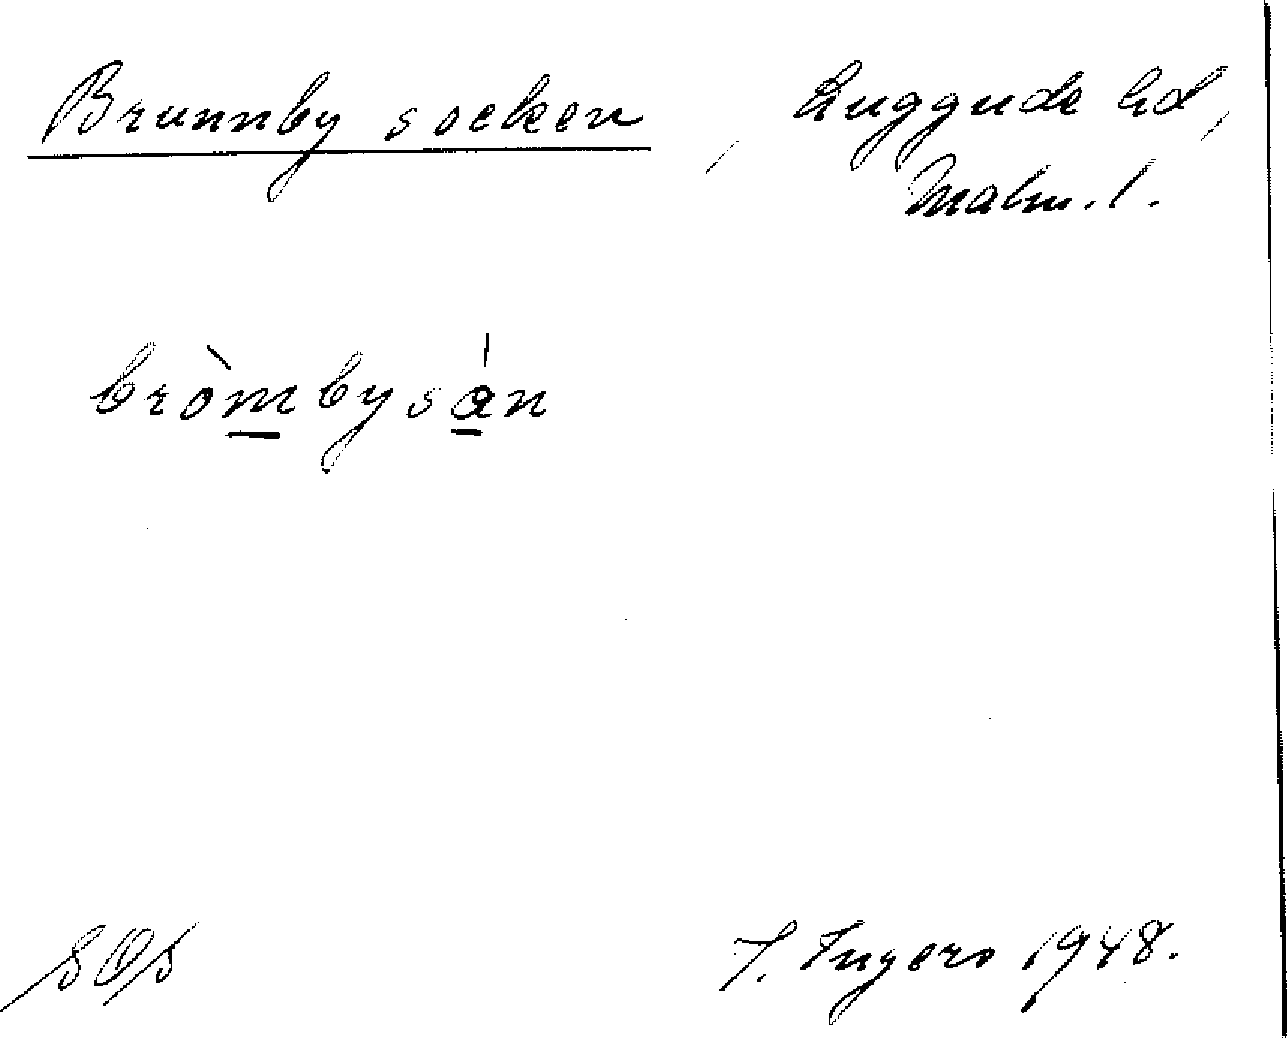 Brunnby socken, Luggude hd,
Malm. l.
bròmbysán
SOS
I. Ingers 1948.